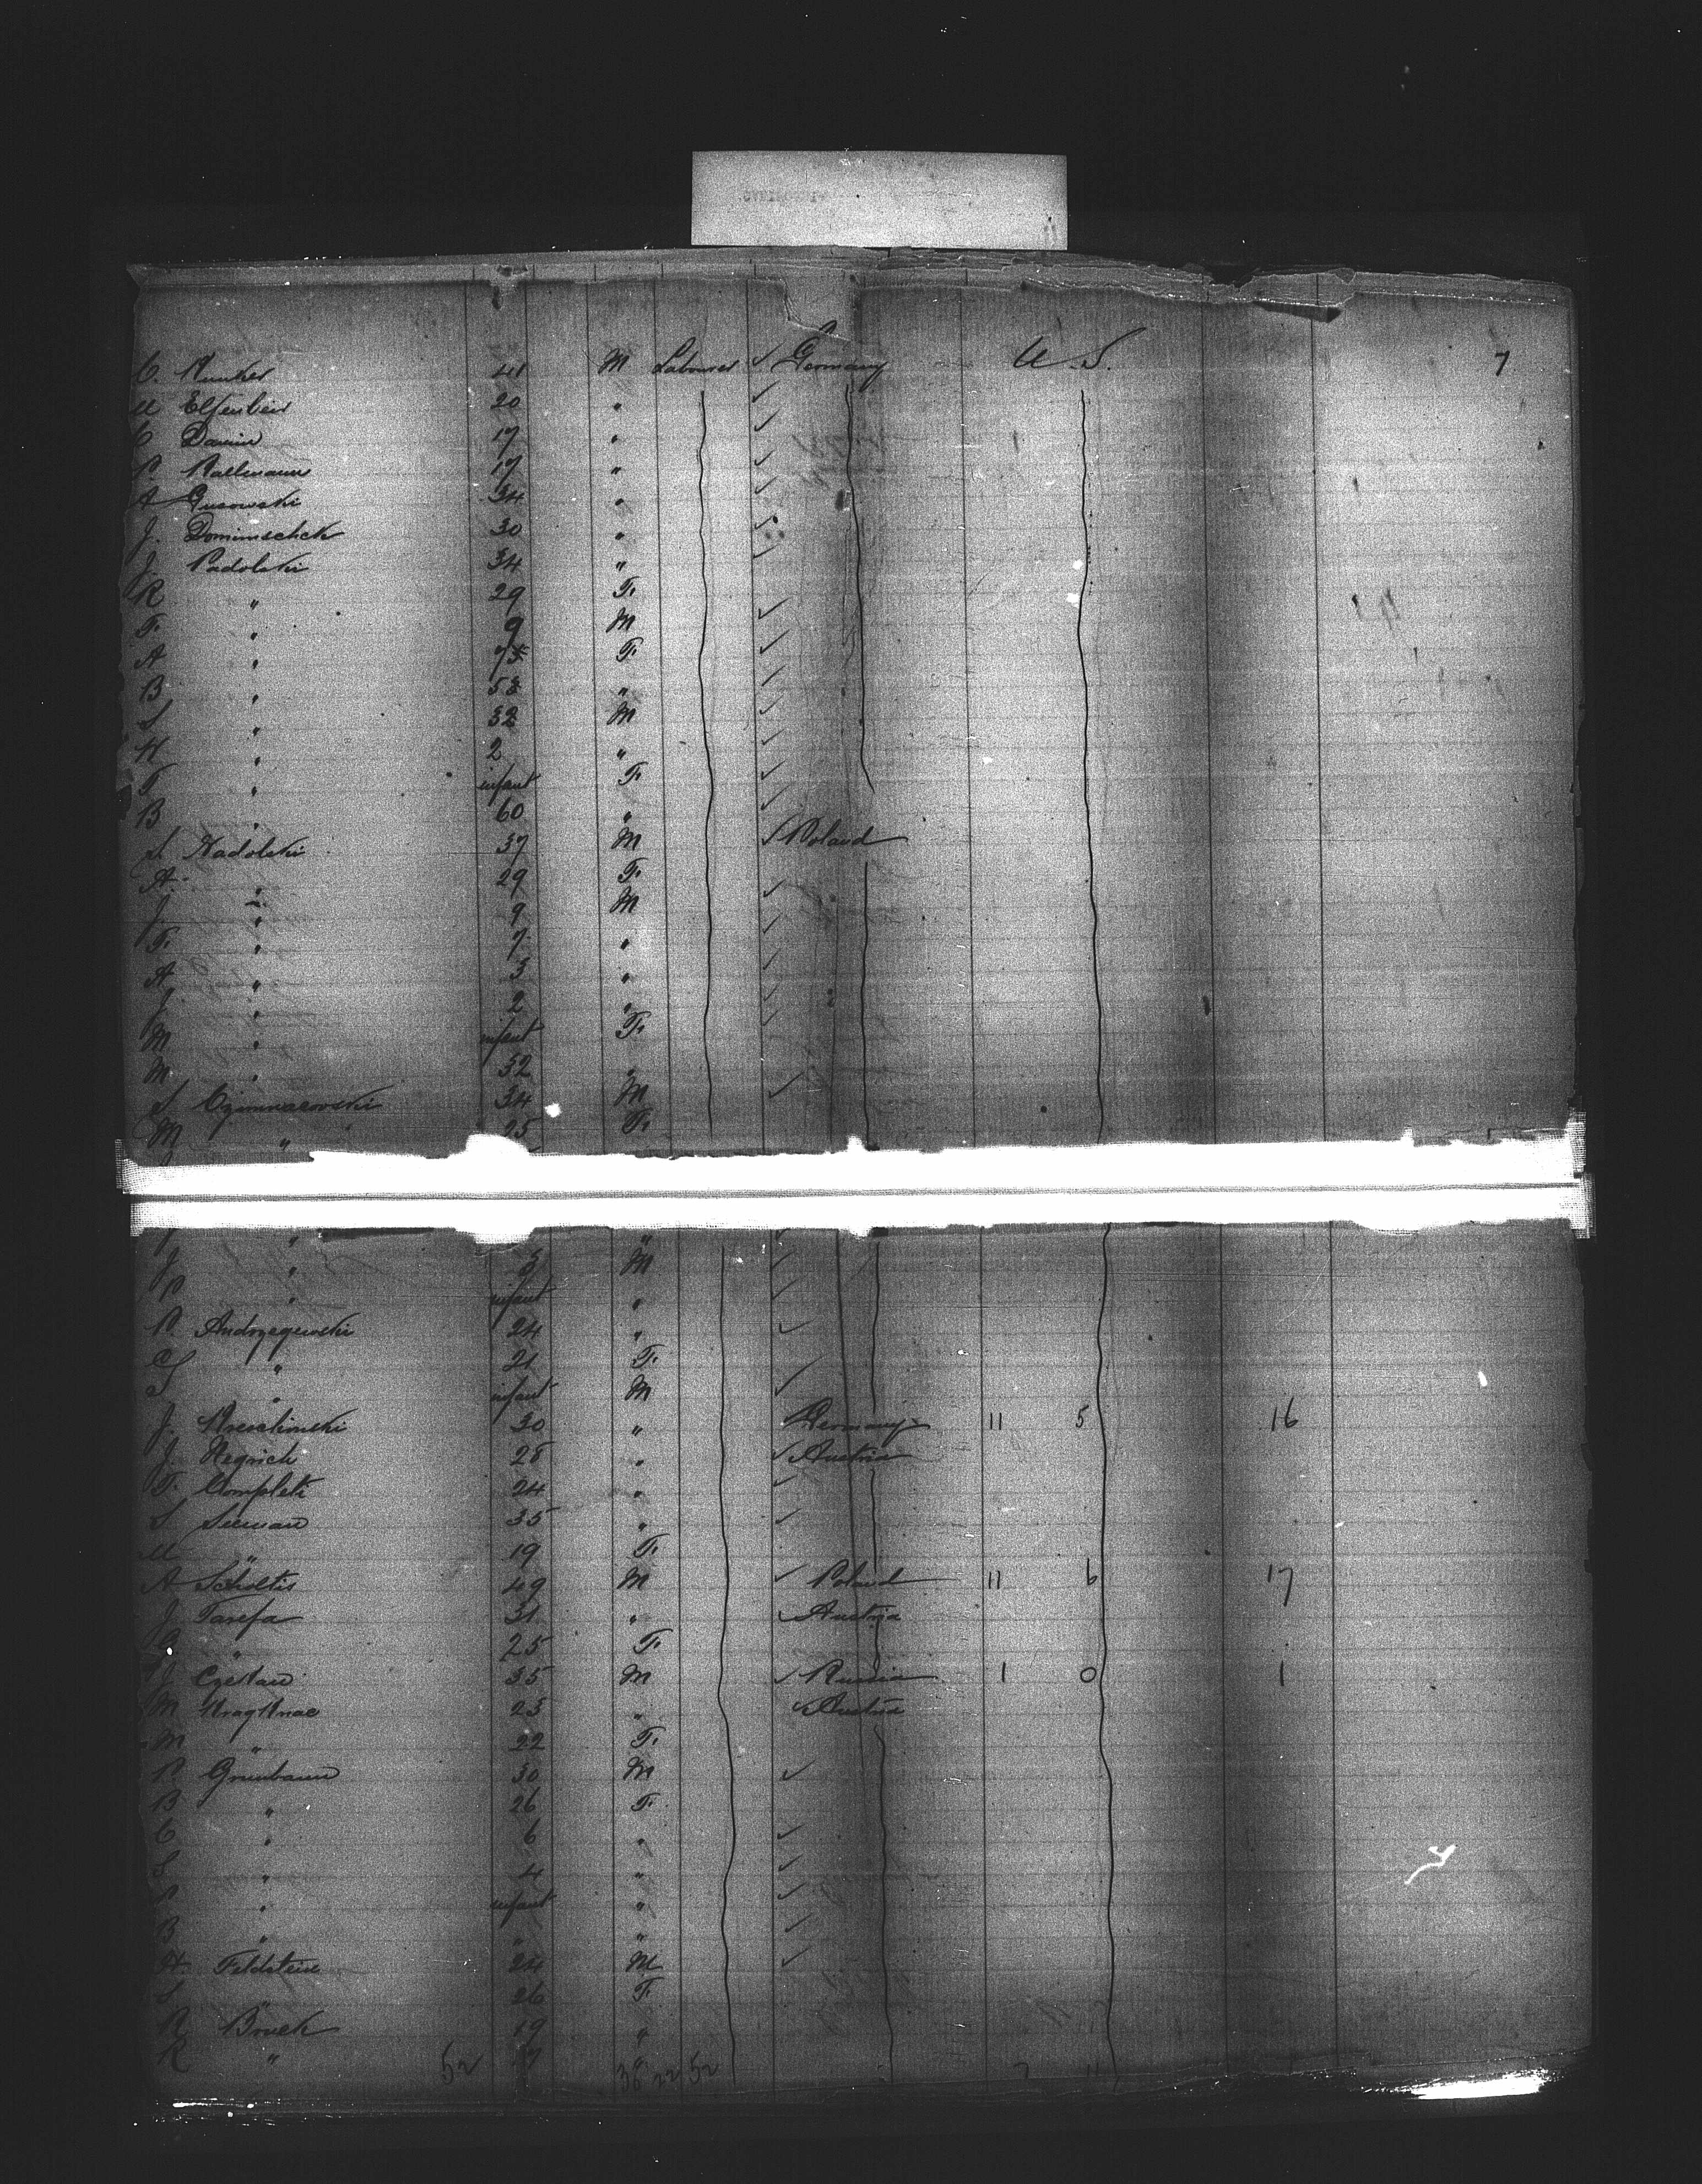 C. Kunkel 41 M Labourer ✓ Germany U.S. 7
M Elfenbein 20 " ✓
C Damin 17 " ✓
P. Kallmann 17 " ✓
A Gusowski 34 " ✓
J. Dominischek 30 " ✓
J. Padolski 34 " ✓
R " 29 F.
F. " 9 M ✓
A " F. ✓
B " " ✓
S " 32 M ✓
H " 2 " ✓
F " infant F. ✓
B " 60 " ✓
S Nadolski 37 M ✓ Poland
A. " 29 F.
J " 9 M ✓
F. " 7 " ✓
A " 3 " ✓
J. " 2 " ✓
M " infant F. ✓
M. " 32 "
S 34 M ✓
M " 25 F.
J " "
J " 3 M ✓
P " infant " ✓
P. Andrzegewski 24 " ✓
" 21 F.
S " infant M ✓
J. 30 " Germany 11 5 16
J. Hegrich 28 " ✓ Austria
F. Completi 24 " ✓
S Seeman 35 " ✓
M " 19 F.
A Scholtis 49 M ✓ Poland 11 6 17
J. Tarefa 31 " ✓ Austria
" 25 F.
J Czeslau 35 M ✓ Russia 1 0 1
M 23 " ✓ Austria
M " 22 F.
P Grunbaum 30 M ✓
B " 26 F.
C " 6 " ✓
S " 4 " ✓
" infant " ✓
B " " " ✓
H. Feldstein 24 M ✓
S " 26 F.
R Bruck 19 "
R " 52 17 " 36 22 52 7 11